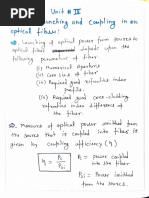 Unit # III
Power Launching and Coupling in an
optical fiber:
Launching of optical power from source to
optical fiber depends upon the
following parameter of fiber.
(i) Numerical Aperture
(ii) Core Size of fiber
(iii) Required good refractive index
profile.
(iv) Required good core-cladding
refractive index difference of
the fiber.
Measure of optical power emitted
from the source that is coupled into fiber is
given by coupling efficiency (η)
η = PF / Ps
PF = power coupled
into the fiber.
Ps = Power emitted
from the source.